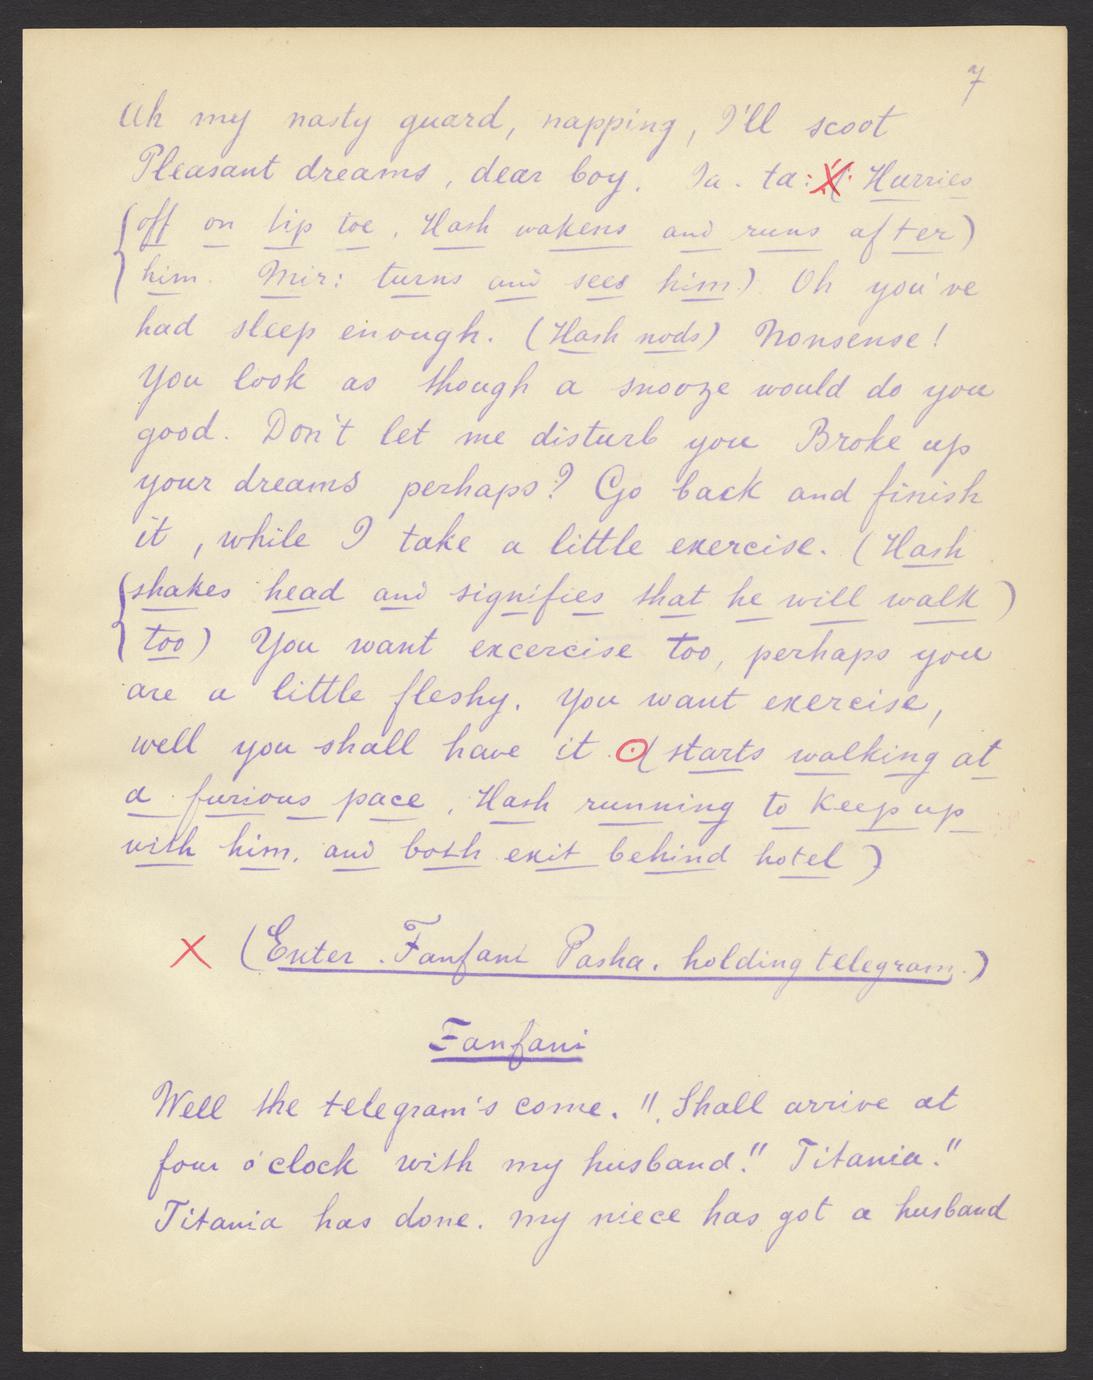 7
Ah my nasty guard, napping, I'll scoot
Pleasant dreams, dear boy. Ta. ta: X (Hurries
(off on tip toe. Hash wakens and runs after)
him. Mir: turns and sees him) Oh you've
had sleep enough. (Hash nods) Nonsense!
You look as though a snooze would do you
good. Don't let me disturb you Broke up
your dreams perhaps? Go back and finish
it, while I take a little exercise. (Hash
(shakes head and signifies that he will walk)
too) You want excercise too, perhaps you
are a little fleshy. You want exercise,
well you shall have it. (starts walking at
a furious pace, Hash running to keep up
with him, and both exit behind hotel)
X (Enter Fanfani Pasha, holding telegram.)
Fanfani
Well the telegram's come. "Shall arrive at
four o'clock with my husband." Titania."
Titania has done. My niece has got a husband